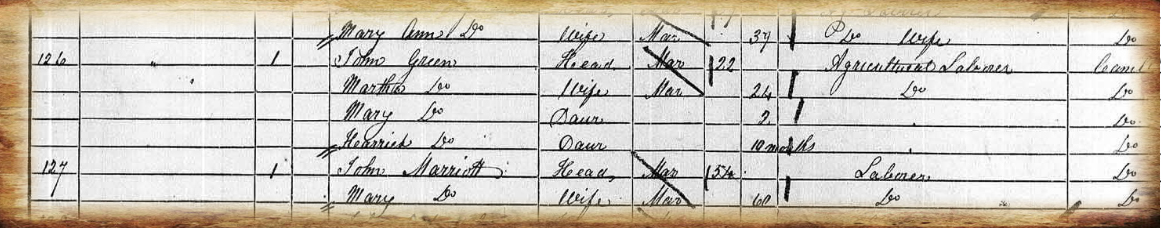 Mary Ann Do Wife Mar 37 Do Wife Do
126 " 1 John Green Head Mar 22 Agricultural Laborer
' Martha Do Wife Mar 24 Do Do
Mary Do Daur 2 Do
Henriet Do Daur 10 months Do
127 1 John Marriott Head Mar 54 Laborer Do
Mary Do Wife Mar 60 Do Do